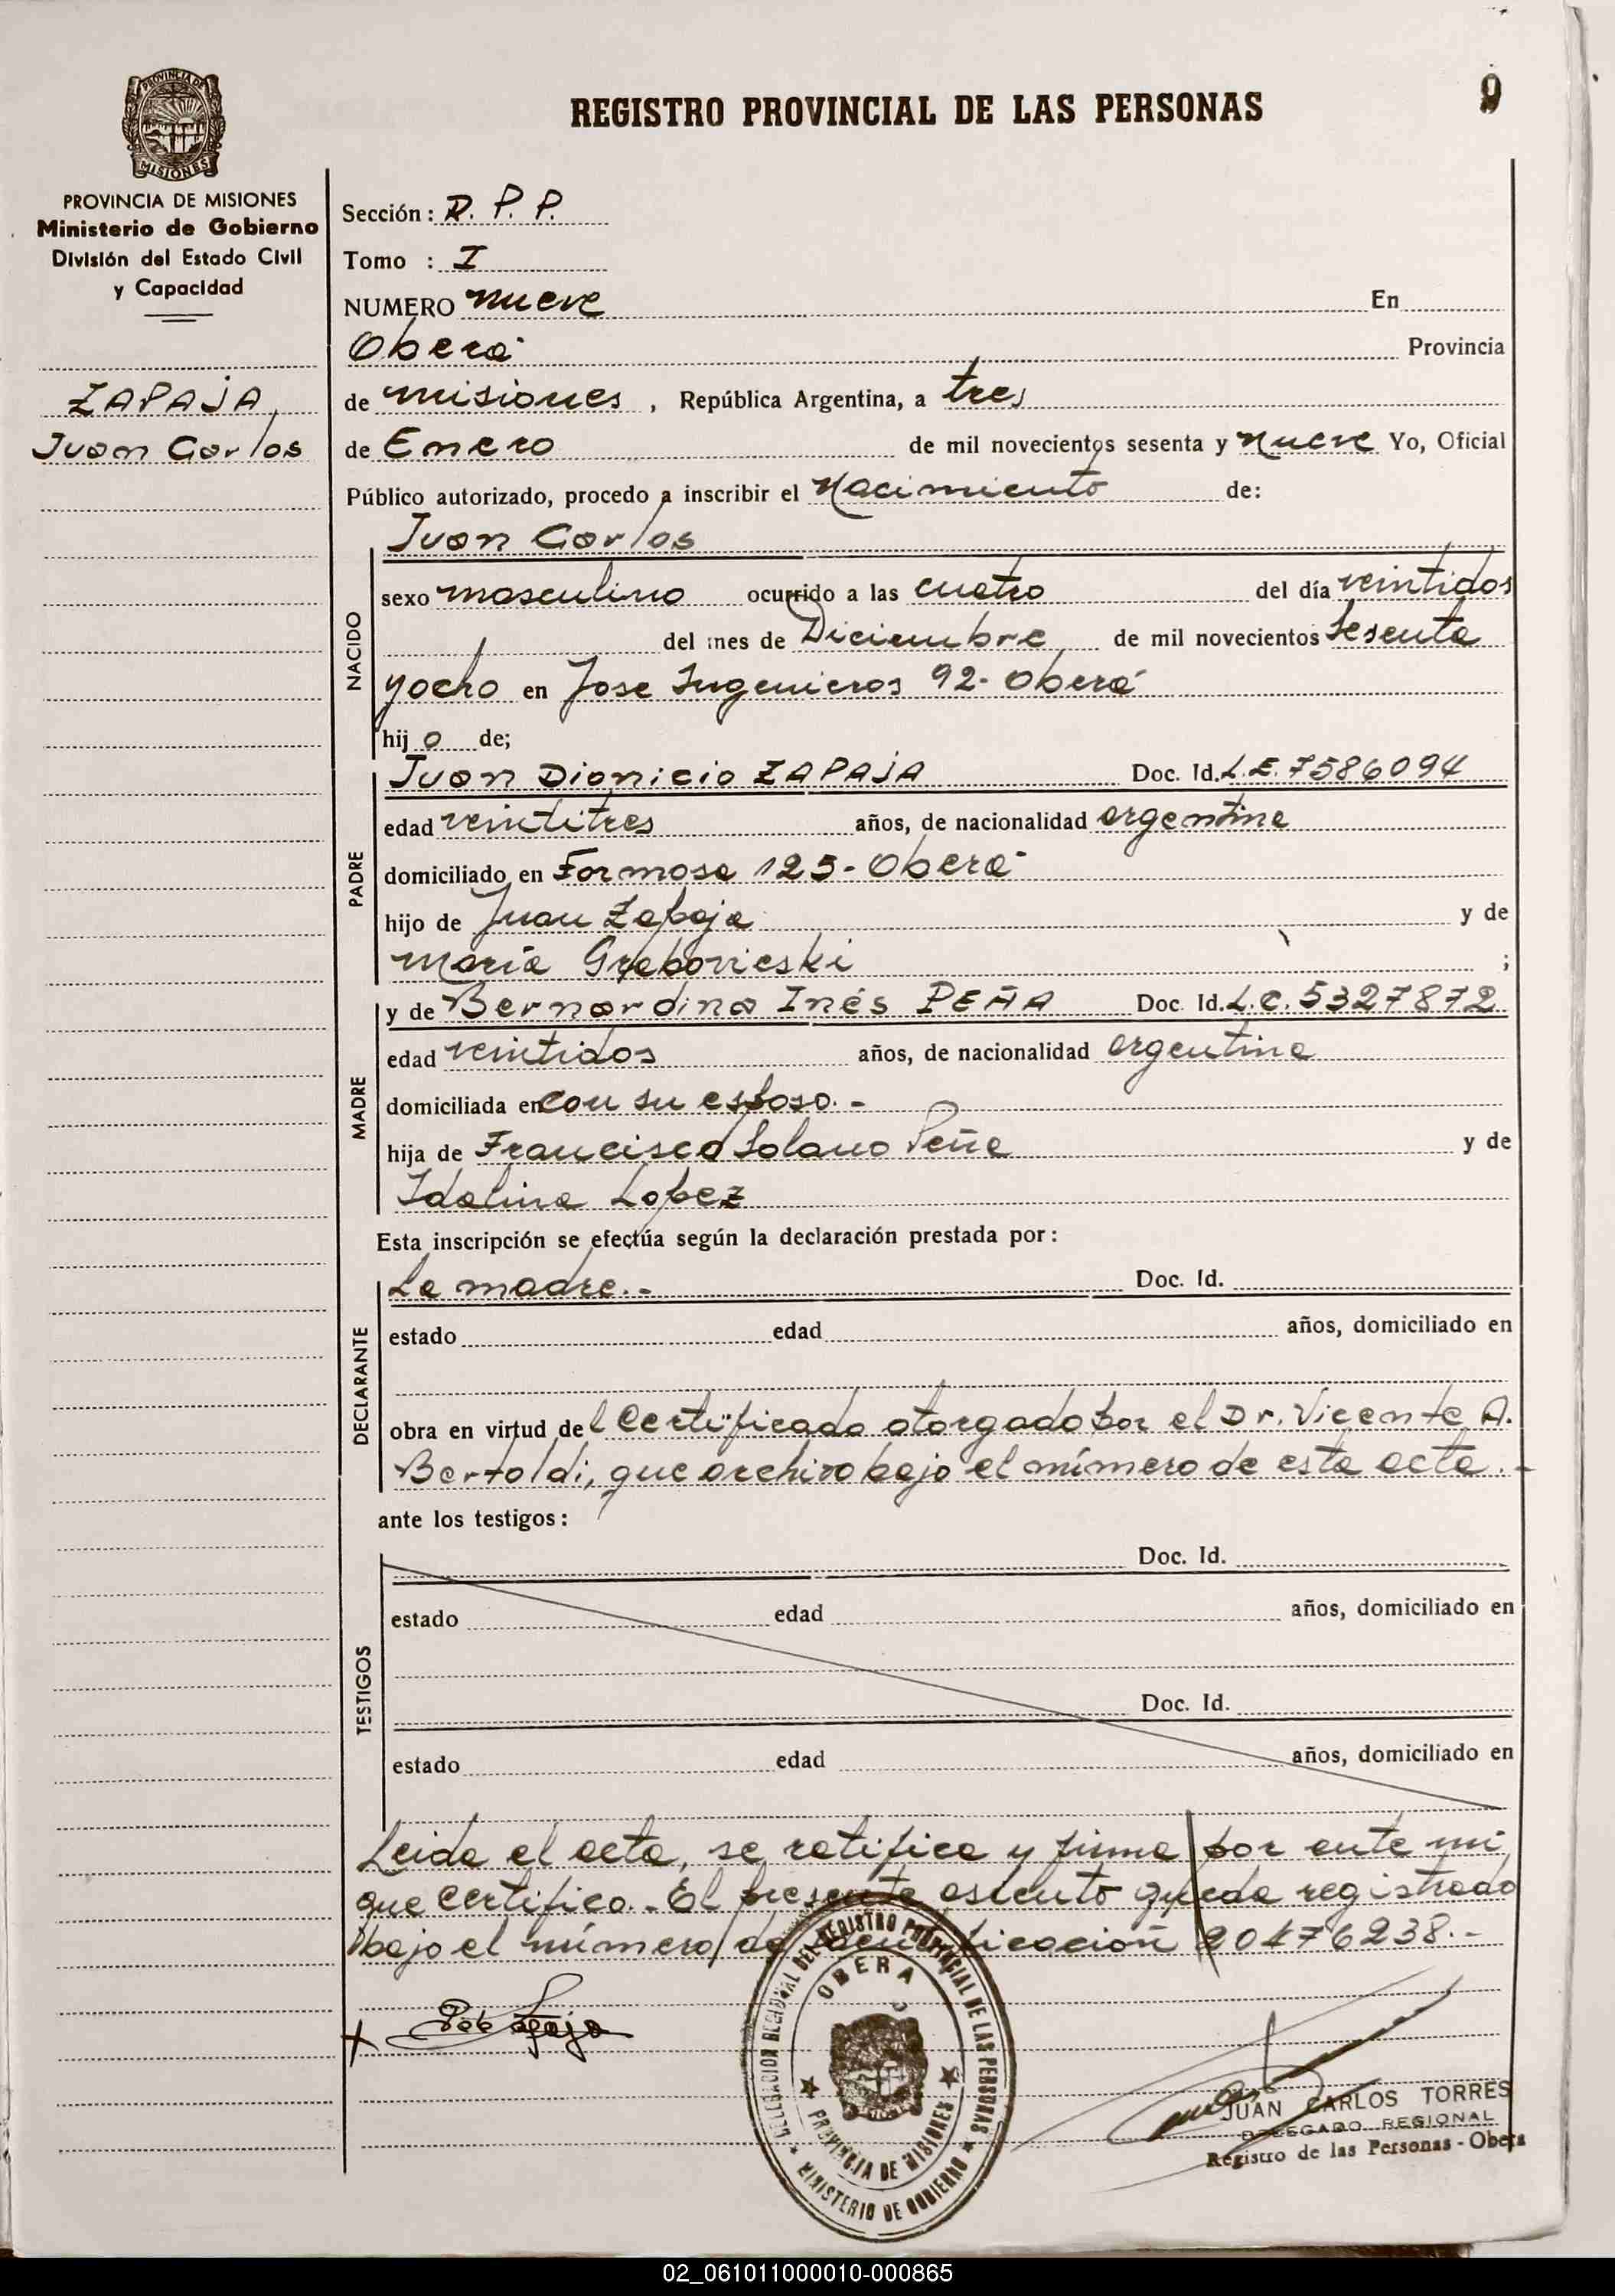 REGISTRO PROVINCIAL DE LAS PERSONAS
9
PROVINCIA DE MISIONES
PROVINCIA DE MISIONES
Ministerio de Gobierno
División del Estado Civil
y Capacidad
ZAPAJA,
Juan Carlos
Sección: R. P. P.
Tomo : I
NUMERO nueve En
Oberá Provincia
de misiones, República Argentina, a tres
de Enero de mil novecientos sesenta y nueve Yo, Oficial
Público autorizado, procedo a inscribir el Nacimiento de:
Juan Carlos
NACIDO
sexo masculino ocurrido a las cuatro del día veintidos
del mes de Diciembre de mil novecientos sesenta
y ocho en Jose Ingenieros 92- Oberá
hij o de;
PADRE
Juan Dionicio ZAPAJA Doc. Id. L.E. 7586094
edad veintitres años, de nacionalidad argentina
domiciliado en Formosa 125- Oberá
hijo de Juan Zapaja y de
María Grabovieski ;
MADRE
y de Bernardina Inés PEÑA Doc. Id. L.C. 5327872
edad veintidos años, de nacionalidad argentina
domiciliada en con su esposo.-
hija de Francisco Solano Peña y de
Idalina Lopez
Esta inscripción se efectúa según la declaración prestada por:
DECLARANTE
La madre.- Doc. Id.
estado edad años, domiciliado en
obra en virtud de l Certificado otorgado por el Dr. Vicente A.
Bertoldi, que archivo bajo el número de esta acta.-
ante los testigos:
TESTIGOS
Doc. Id.
estado edad años, domiciliado en
Doc. Id.
estado edad años, domiciliado en
Leida el acta, se ratifica y firma por ante mi,
que certifico.- El presente asiento queda registrado
bajo el número de identificación 20476238.-
DELEGACION REGIONAL DEL REGISTRO PROVINCIAL DE LAS PERSONAS
OBERA
PROVINCIA DE MISIONES
MINISTERIO DE GOBIERNO
JUAN CARLOS TORRES
DELEGADO REGIONAL
Registro de las Personas - Oberá
02_061011000010-000865